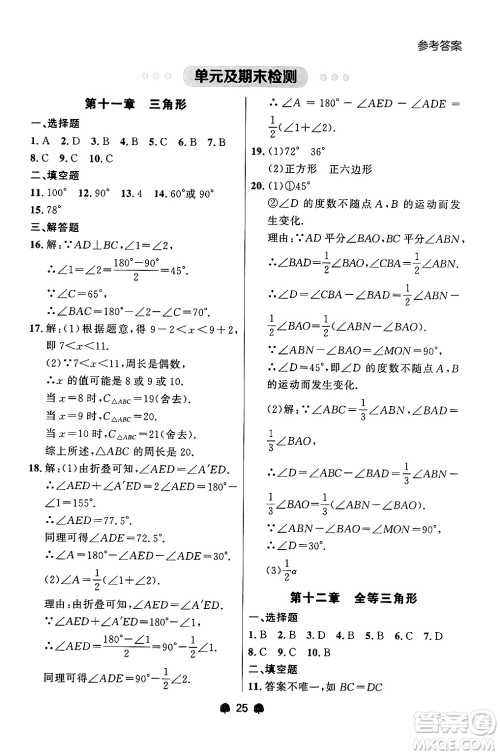 参考答案
单元及期末检测
第十一章 三角形
一、选择题
1. A 2. D 3. D 4. B 5. C 6. B 7. B
8. C 9. C 10. C
二、填空题
11. 100° 12. 90° 13. 4 14. 60°或90°
15. 78°
三、解答题
16. 解：∵AD⊥BC，∠1=∠2，
∴∠1=∠2=(180°-90°)/2=45°。
又∵∠C=65°，
∴∠BAC=180°-45°-65°=70°。
17. 解：(1)根据题意，得 9-2<x<9+2，
即 7<x<11。
(2)∵7<x<11，周长是偶数，
∴x 的值可能是 8 或 9 或 10。
当 x=8 时，C△ABC=19(舍去)。
当 x=9 时，C△ABC=20。
当 x=10 时，C△ABC=21(舍去)。
综上所述，△ABC 的周长是 20。
18. 解：(1)由折叠可知，∠AED=∠A′ED。
∴∠AED+∠A′ED=180°-∠1=155°。
∴∠AED=77.5°。
同理可得∠ADE=72.5°。
∴∠A=180°-∠AED-∠ADE=30°。
(2)∠A=1/2∠1+1/2∠2。
理由：由折叠可知，∠AED=∠A′ED。
∵∠AED+∠A′ED=180°-∠1，
∴∠AED=(180°-∠1)/2=90°-1/2∠1。
同理可得∠ADE=90°-1/2∠2。
∴∠A=180°-∠AED-∠ADE=
1/2∠1+1/2∠2。
19. (1)72° 36°
(2)正方形 正六边形
20. (1)①45°
②∠D 的度数不随点 A，B 的运动而发
生变化。
理由：∵AD 平分∠BAO，BC 平分∠ABN，
∴∠BAD=1/2∠BAO，∠CBA=1/2∠ABN。
∴∠D=∠CBA-∠BAD=1/2∠ABN-
1/2∠BAO=1/2∠MON=45°。
∴∠D=45°，即∠D 的度数不随点 A，B
的运动而发生变化。
(2)解：∵∠ABC=1/3∠ABN，∠BAD=
1/3∠BAO，
∴∠D=∠ABC-∠BAD=1/3∠ABN-
1/3∠BAO=1/3∠MON。
∵∠MON=90°，
∴∠D=30°。
(3)1/2α
第十二章 全等三角形
一、选择题
1. B 2. B 3. D 4. D 5. B 6. D 7. D
8. C 9. C 10. B
二、填空题
11. 答案不唯一，如 BC=DC
25
答案圈
MXQE.COM